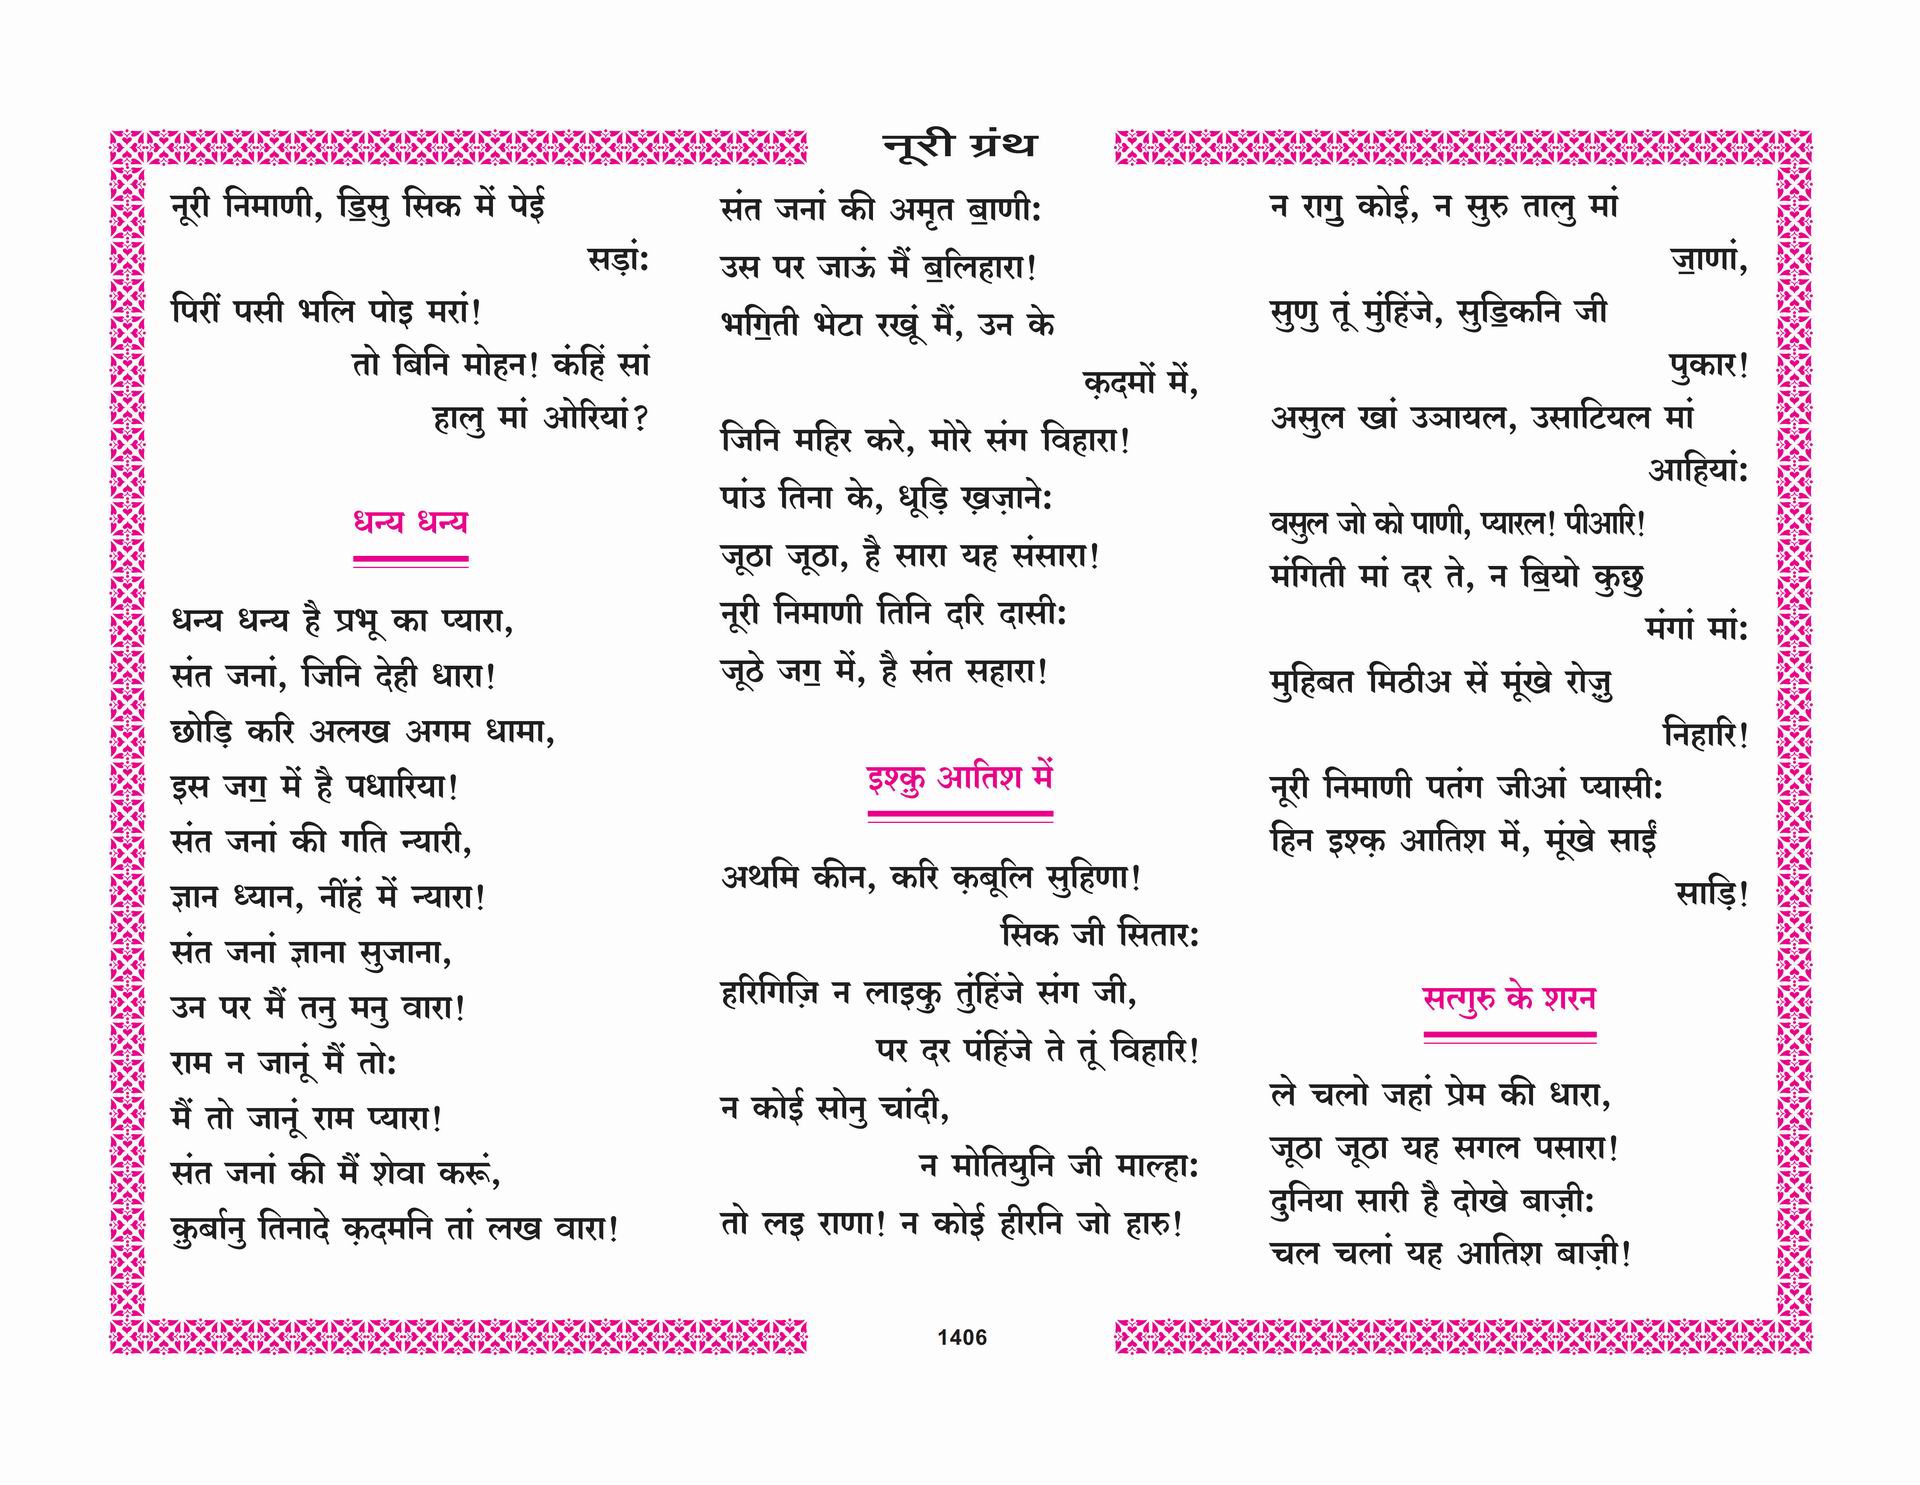 नूरी ग्रंथ
नूरी निमाणी, ॾिसु सिक में पेई
सड़ां:
पिरीं पसी भलि पोइ मरां!
तो बिनि मोहन! कंहिं सां
हालु मां ओरियां?
धन्य धन्य
धन्य धन्य है प्रभू का प्यारा,
संत जनां, जिनि देही धारा!
छोड़ि करि अलख अगम धामा,
इस जॻ में है पधारिया!
संत जनां की गति न्यारी,
ज्ञान ध्यान, नींहं में न्यारा!
संत जनां ज्ञाना सुजाना,
उन पर मैं तनु मनु वारा!
राम न जानूं मैं तो:
मैं तो जानूं राम प्यारा!
संत जनां की मैं शेवा करूं,
क़ुर्बानु तिनादे क़दमनि तां लख वारा!
संत जनां की अमृत ॿाणी:
उस पर जाऊं मैं ॿलिहारा!
भॻिती भेटा रखूं मैं, उन के
क़दमों में,
जिनि महिर करे, मोरे संग विहारा!
पांउ तिना के, धूड़ि ख़ज़ाने:
जूठा जूठा, है सारा यह संसारा!
नूरी निमाणी तिनि दरि दासी:
जूठे जॻ में, है संत सहारा!
इश्क़ु आतिश में
अथमि कीन, करि क़बूलि सुहिणा!
सिक जी सितार:
हरिगिज़ि न लाइक़ु तुंहिंजे संग जी,
पर दर पंहिंजे ते तूं विहारि!
न कोई सोनु चांदी,
न मोतियुनि जी माल्हा:
तो लइ राणा! न कोई हीरनि जो हारु!
न रागु कोई, न सुरु तालु मां
ॼाणां,
सुणु तूं मुंहिंजे, सुॾिकनि जी
पुकार!
असुल खां उञायल, उसाटियल मां
आहियां:
वसुल जो को पाणी, प्यारल! पीआरि!
मंगिती मां दर ते, न ॿियो कुछु
मंगां मां:
मुहिबत मिठीअ सें मूंखे रोज़ु
निहारि!
नूरी निमाणी पतंग जीआं प्यासी:
हिन इश्क़ आतिश में, मूंखे साईं
साड़ि!
सत्गुरु के शरन
ले चलो जहां प्रेम की धारा,
जूठा जूठा यह सगल पसारा!
दुनिया सारी है दोखे बाज़ी:
चल चलां यह आतिश बाज़ी!
1406